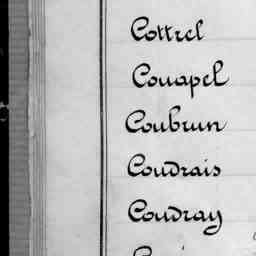 Cottrel
Couapel
Coubrun
Coudrais
Coudray